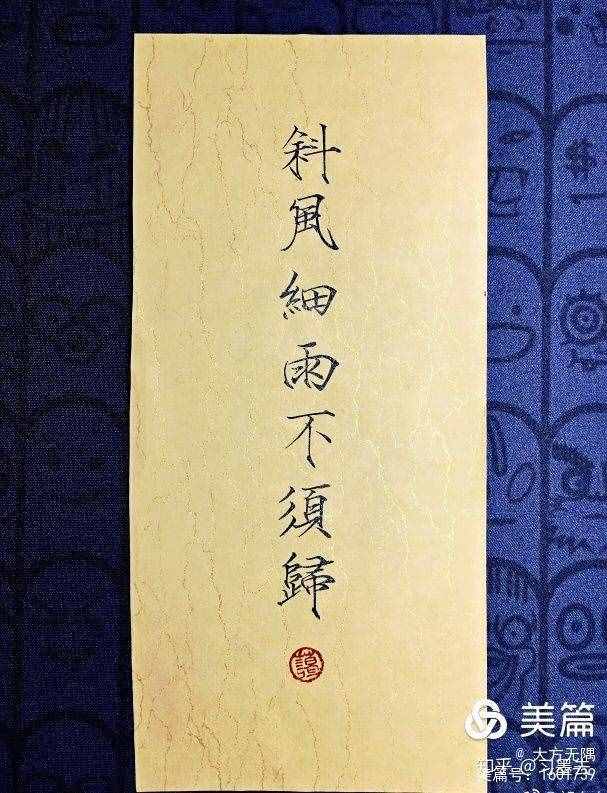 斜風細雨不須歸
美篇
@ 大方无隅
知乎 @习墨去
美篇号：1601739